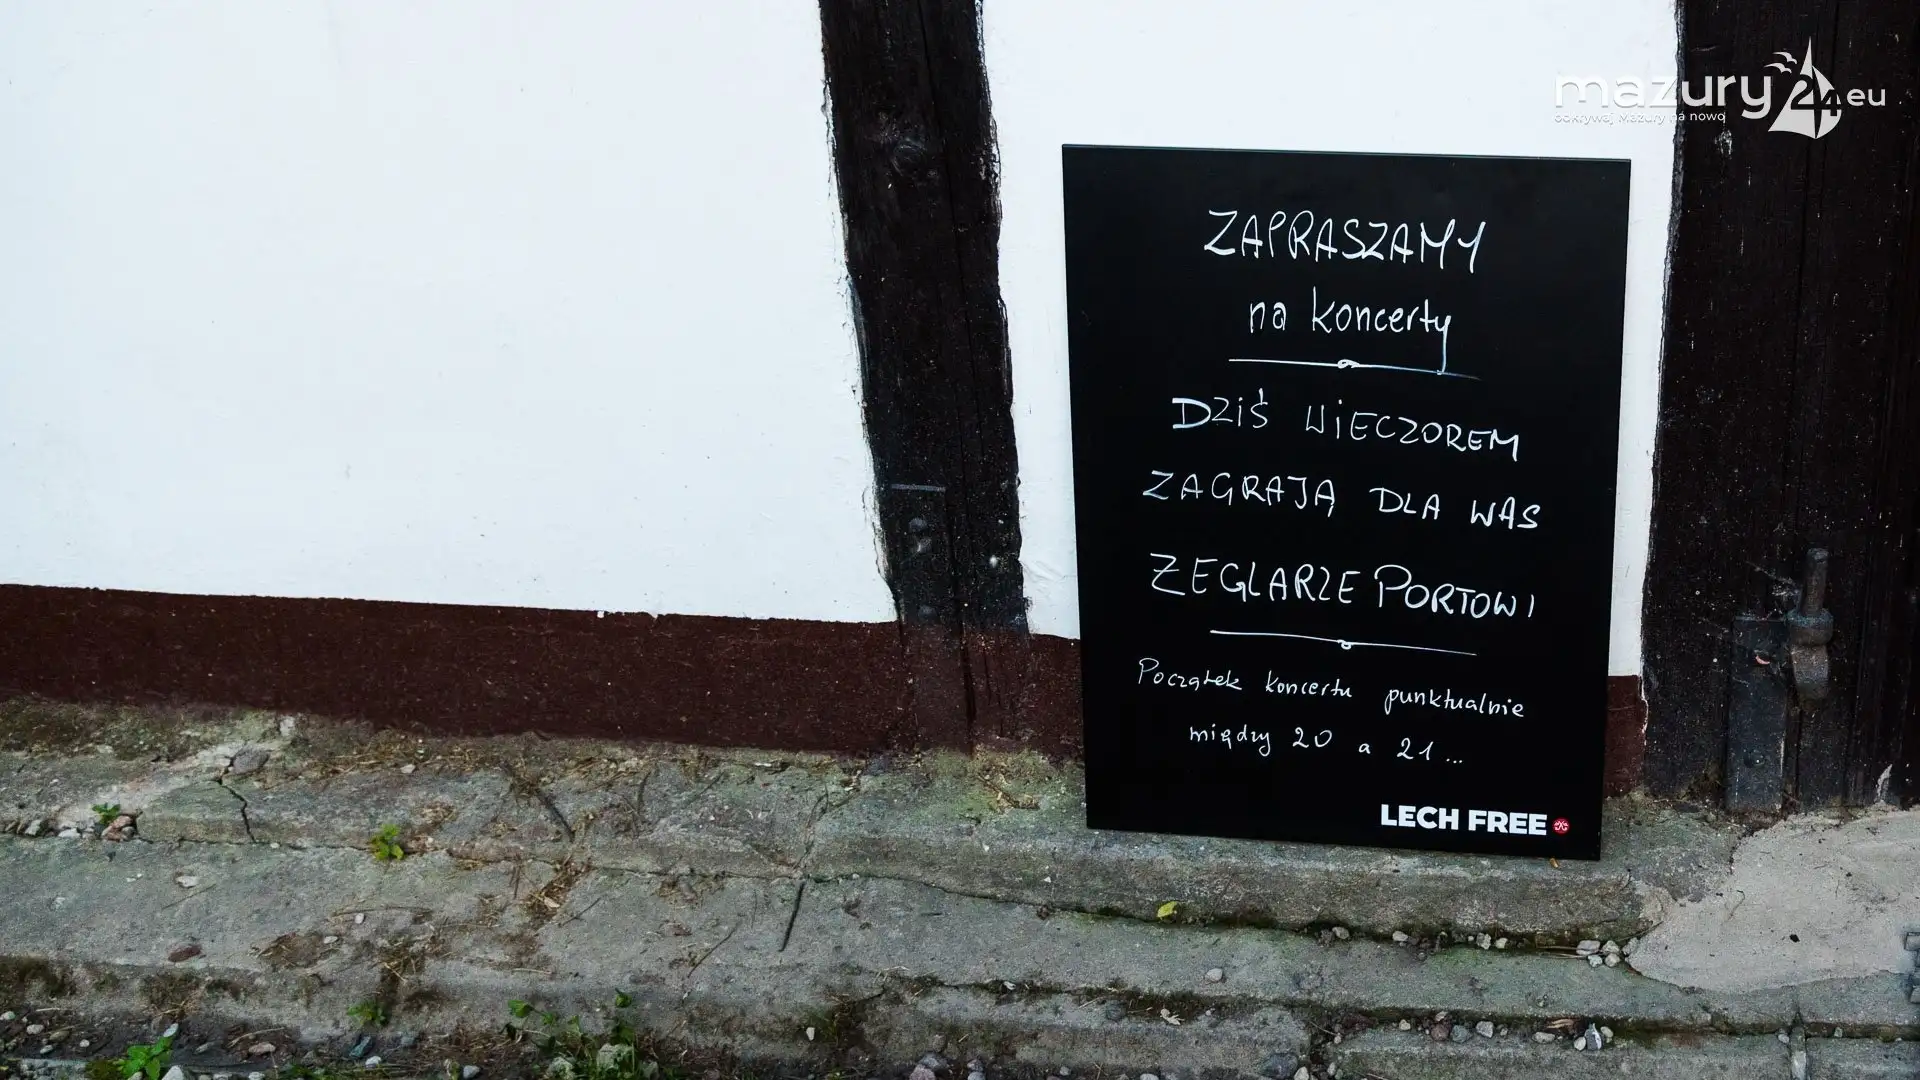 mazury24.eu
odkrywaj Mazury na nowo
ZAPRASZAMY
na koncerty
DZIŚ WIECZOREM
ZAGRAJĄ DLA WAS
ŻEGLARZE PORTOWI
Początek koncertu punktualnie
między 20 a 21...
LECH FREE